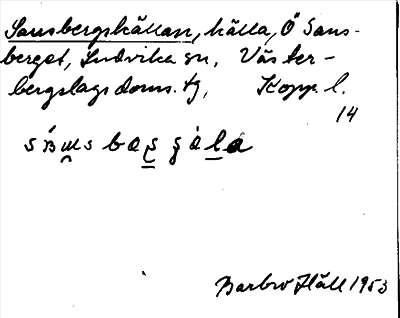 Sansbergskällan, källa, Ö Sans-
berget, Ludvika sn, Väster-
bergslags doms. tg, Kopp. l.
14
Barbro Häll 1953